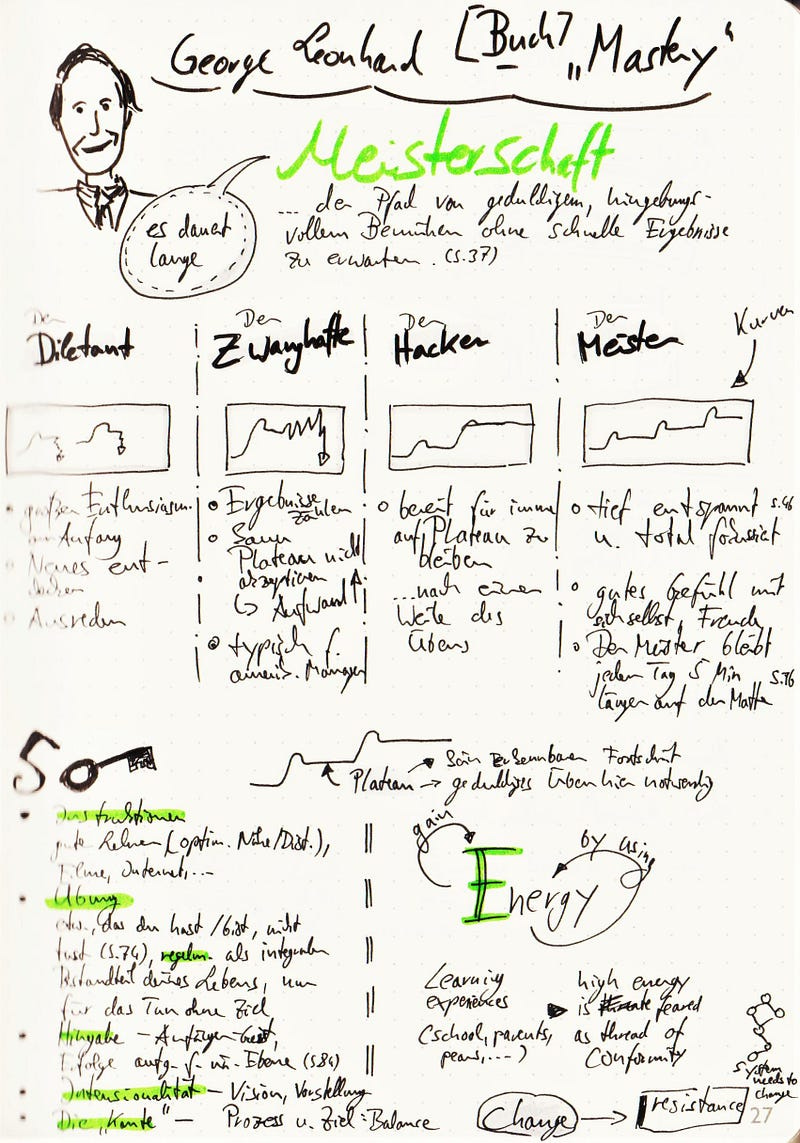 George Leonhard [Buch] „Mastery“
Meisterschaft
... der Pfad von geduldigem, hingebungs-
vollem Bemühen ohne schnelle Ergebnisse
zu erwarten. (S.37)
es dauert
lange
Der
Diletant
Der
Zwanghafte
Der
Hacker
Der
Meister
Kurven
großer Enthusiasm.
am Anfang
Neues ent-
decken
Ausreden
Ergebnisse
zählen
kann
Plateau nicht
akzeptieren
↳ Aufwand ↑
typisch f.
amerik. Manager
bereit für immer
auf Plateau zu
bleiben
...nach einer
Weile des
Übens
tief entspannt S.46
u. total fokussiert
gutes Gefühl mit
sich selbst, Freude
Der Meister bleibt
jeden Tag 5 Min S.76
länger auf der Matte
5
Plateau → kein erkennbarer Fortschritt
→ geduldiges Üben hier notwendig
Instruktionen
gute Lehrer (optim. Nähe/Dist.),
Filme, Internet, ...
Übung
etw., das du hast/bist, nicht
tust (S.74), regelm. als integralen
Bestandteil deines Lebens, nur
für das Tun ohne Ziel
Hingabe – Anfänger-Geist,
Erfolge aufg. f. Ebene (S.84)
Intensionalität – Vision, Vorstellung
Die „Kante“ – Prozess u. Ziel: Balance
gain
Energy
by using
Learning
experiences
(school, parents,
pears, ...)
high energy
is feared
as thread of
Conformity
System
needs to
change
Change → resistance
27